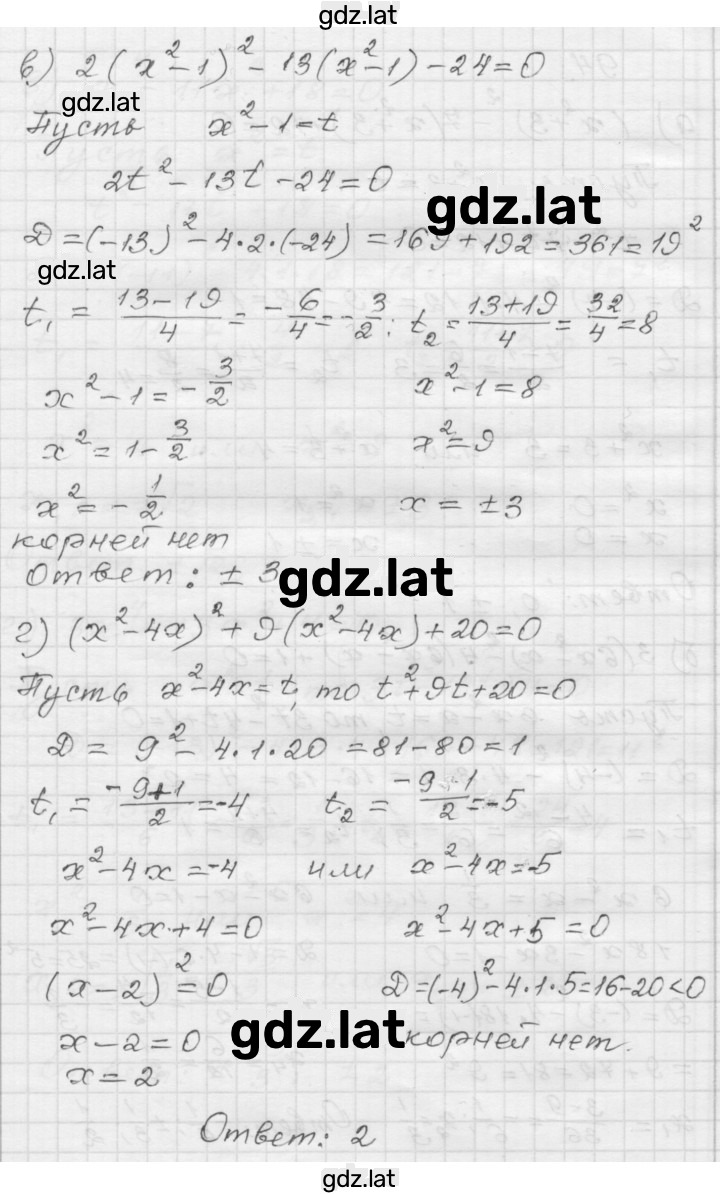 gdz.lat
в) 2(x²-1)²-13(x²-1)-24=0
gdz.lat
Пусть x²-1=t
2t²-13t-24=0
gdz.lat
D=(-13)²-4·2·(-24)=169+192=361=19²
gdz.lat
t₁=(13-19)/4=-6/4=-3/2; t₂=(13+19)/4=32/4=8
x²-1=-3/2 x²-1=8
x²=1-3/2 x²=9
x²=-1/2 x=±3
корней нет
Ответ: ±3
gdz.lat
г) (x²-4x)²+9(x²-4x)+20=0
Пусть x²-4x=t, то t²+9t+20=0
D=9²-4·1·20=81-80=1
t₁=(-9+1)/2=-4 t₂=(-9-1)/2=-5
x²-4x=-4 или x²-4x=-5
x²-4x+4=0 x²-4x+5=0
(x-2)²=0 D=(-4)²-4·1·5=16-20<0
gdz.lat
x-2=0 корней нет.
x=2
Ответ: 2
gdz.lat